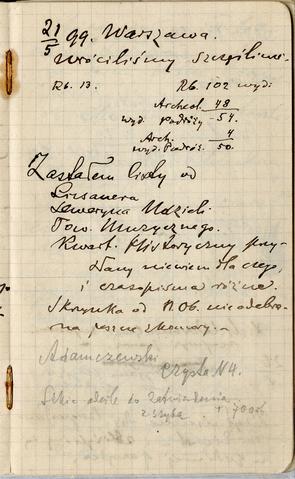 21/5 99. Warszawa.
Wróciliśmy szczęśliwie.
Rb. 13. Rb. 102 wyd:
Archeol. 48
wyd. Podróży - 54.
Arch. 4
wyd. Podróż. 50.
Zastałem listy od
Seweryna Udzieli
Tow. Muzycznego.
Kwart. Historyczny przy-
słany niewiem dla czego,
i czasopisma różne.
Skrzynka od nieodebra-
na jeszcze z komory.-
Adamczewski
czysta N4.
do zatwierdzenia